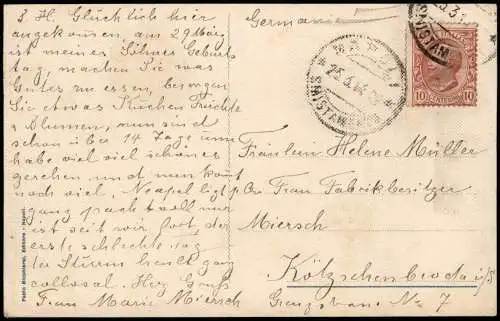 S. H. Glücklich hier
angekommen, am 29 März
ist meines Sohnes Geburts
tag, machen Sie was
Gutes zu essen, besorgen
Sie etwas Kuchen Früchte
u Blumen, nun sind
schon über 14 Tage um
habe viel viel schönes
gesehen und nun kommt
noch viel. Neapel ligt
ganz prachtvoll nur
ist seit wir fort der
erste schlechte Tag
der Sturm heult ganz
collosal. Herz Gruß
Frau Marie Miersch
Germania
NAPOLI
10 CENTESIMI 10
Fräulein Helene Müller
Frau Fabrikbesitzer
Miersch
Kötzschenbroda
Grenzstrasse No 7